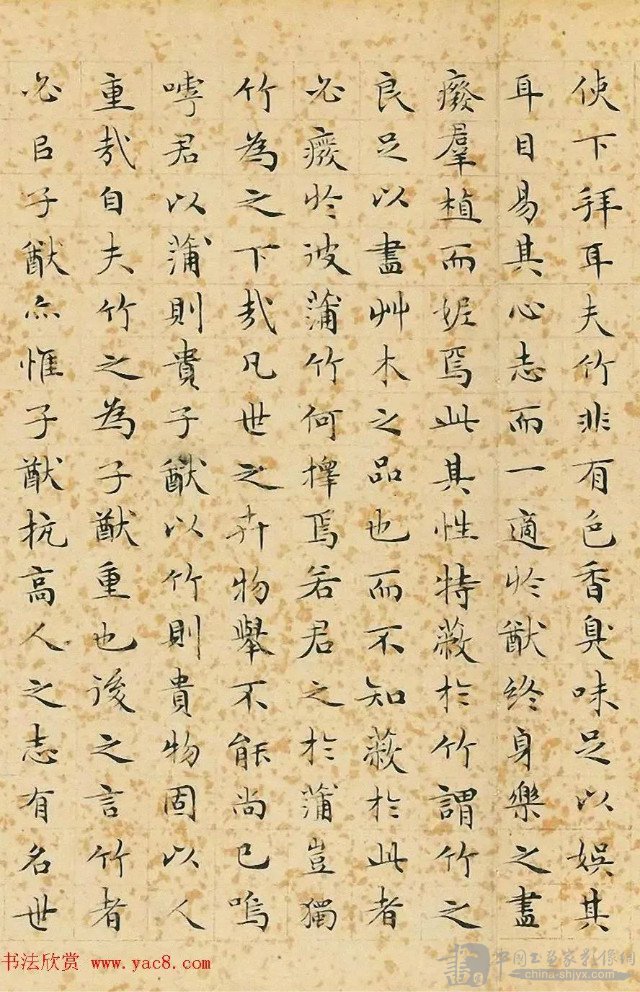 使下拜耳夫竹非有色香臭味足以娛其
耳目易其心志而一適於猷終身樂之盡
癈羣植而姃焉此其性特蔽於竹謂竹之
良足以盡艸木之品也而不知蔽於此者
必癈於彼蒲竹何擇焉若君之於蒲豈獨
竹為之下哉凡世之卉物舉不能尚已嗚
嘑君以蒲則貴子猷以竹則貴物固以人
重哉自夫竹之為子猷重也後之言竹者
必㠯子猷亦惟子猷抗高人之志有名世
书法欣赏 www.yac8.com
中国工艺家影像网
china-shjyx.com